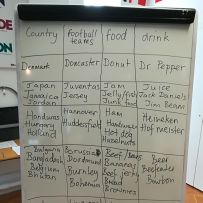 Country football teams food drink
Denmark Doncaster Donut Dr Pepper
Japan Juventus Jam Juice
Jamaica Jersey Jellyfish Jack Daniels
Jordan Junk food Jim Beam
Honduras Hannover Ham Heineken
Hungary Huddersfield Hamburger Hof meister
Holland Hot dog
Hazelnuts
Bulgaria Borussia Beef / Beans Beer
Bangladesh Dortmund Bananas Beefeater
Belgium Burnley Beef jerky Bourbon
Bhutan Bohemia Bread
Brownies